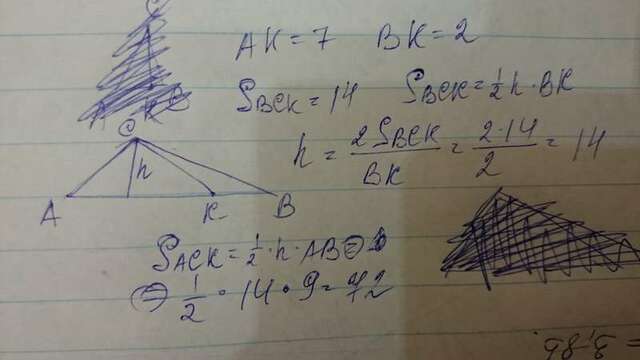 AK = 7 BK = 2
S_BCK = 14 S_BCK = 1/2 h · BK
h = 2S_BCK/BK = 2·14/2 = 14
C
h
A K B
S_ACK = 1/2 · h · AB =
= 1/2 · 14 · 9 =